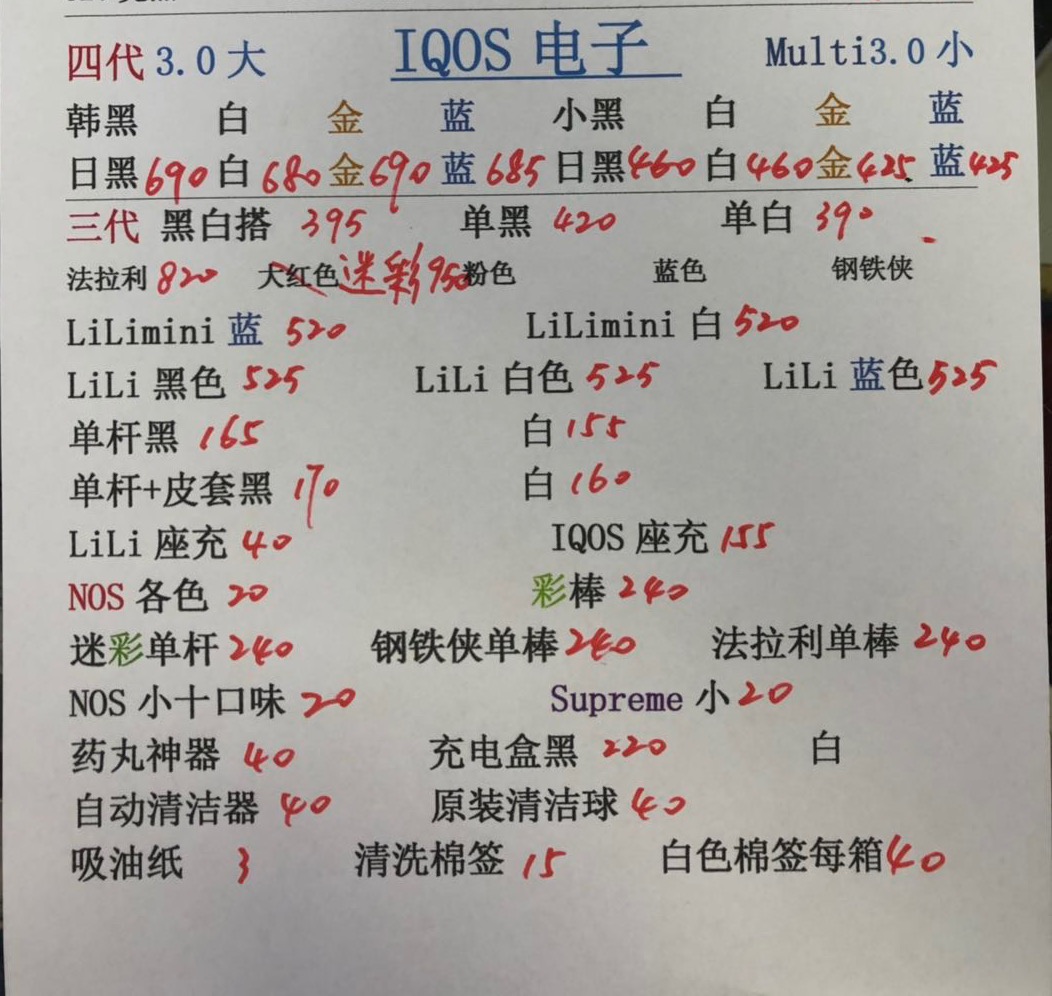 四代 3.0 大 IQOS 电子 Multi3.0 小
韩黑 白 金 蓝 小黑 白 金 蓝
日黑 690 白 680 金 690 蓝 685 日黑 460 白 460 金 425 蓝 425
三代 黑白搭 395 单黑 420 单白 390
法拉利 820 大红色 迷彩 950 粉色 蓝色 钢铁侠
LiLimini 蓝 520 LiLimini 白 520
LiLi 黑色 525 LiLi 白色 525 LiLi 蓝色 525
单杆黑 165 白 155
单杆+皮套黑 170 白 160
LiLi 座充 40 IQOS 座充 155
NOS 各色 20 彩棒 240
迷彩单杆 240 钢铁侠单棒 240 法拉利单棒 240
NOS 小十口味 20 Supreme 小 20
药丸神器 40 充电盒黑 220 白
自动清洁器 40 原装清洁球 40
吸油纸 3 清洗棉签 15 白色棉签每箱 40